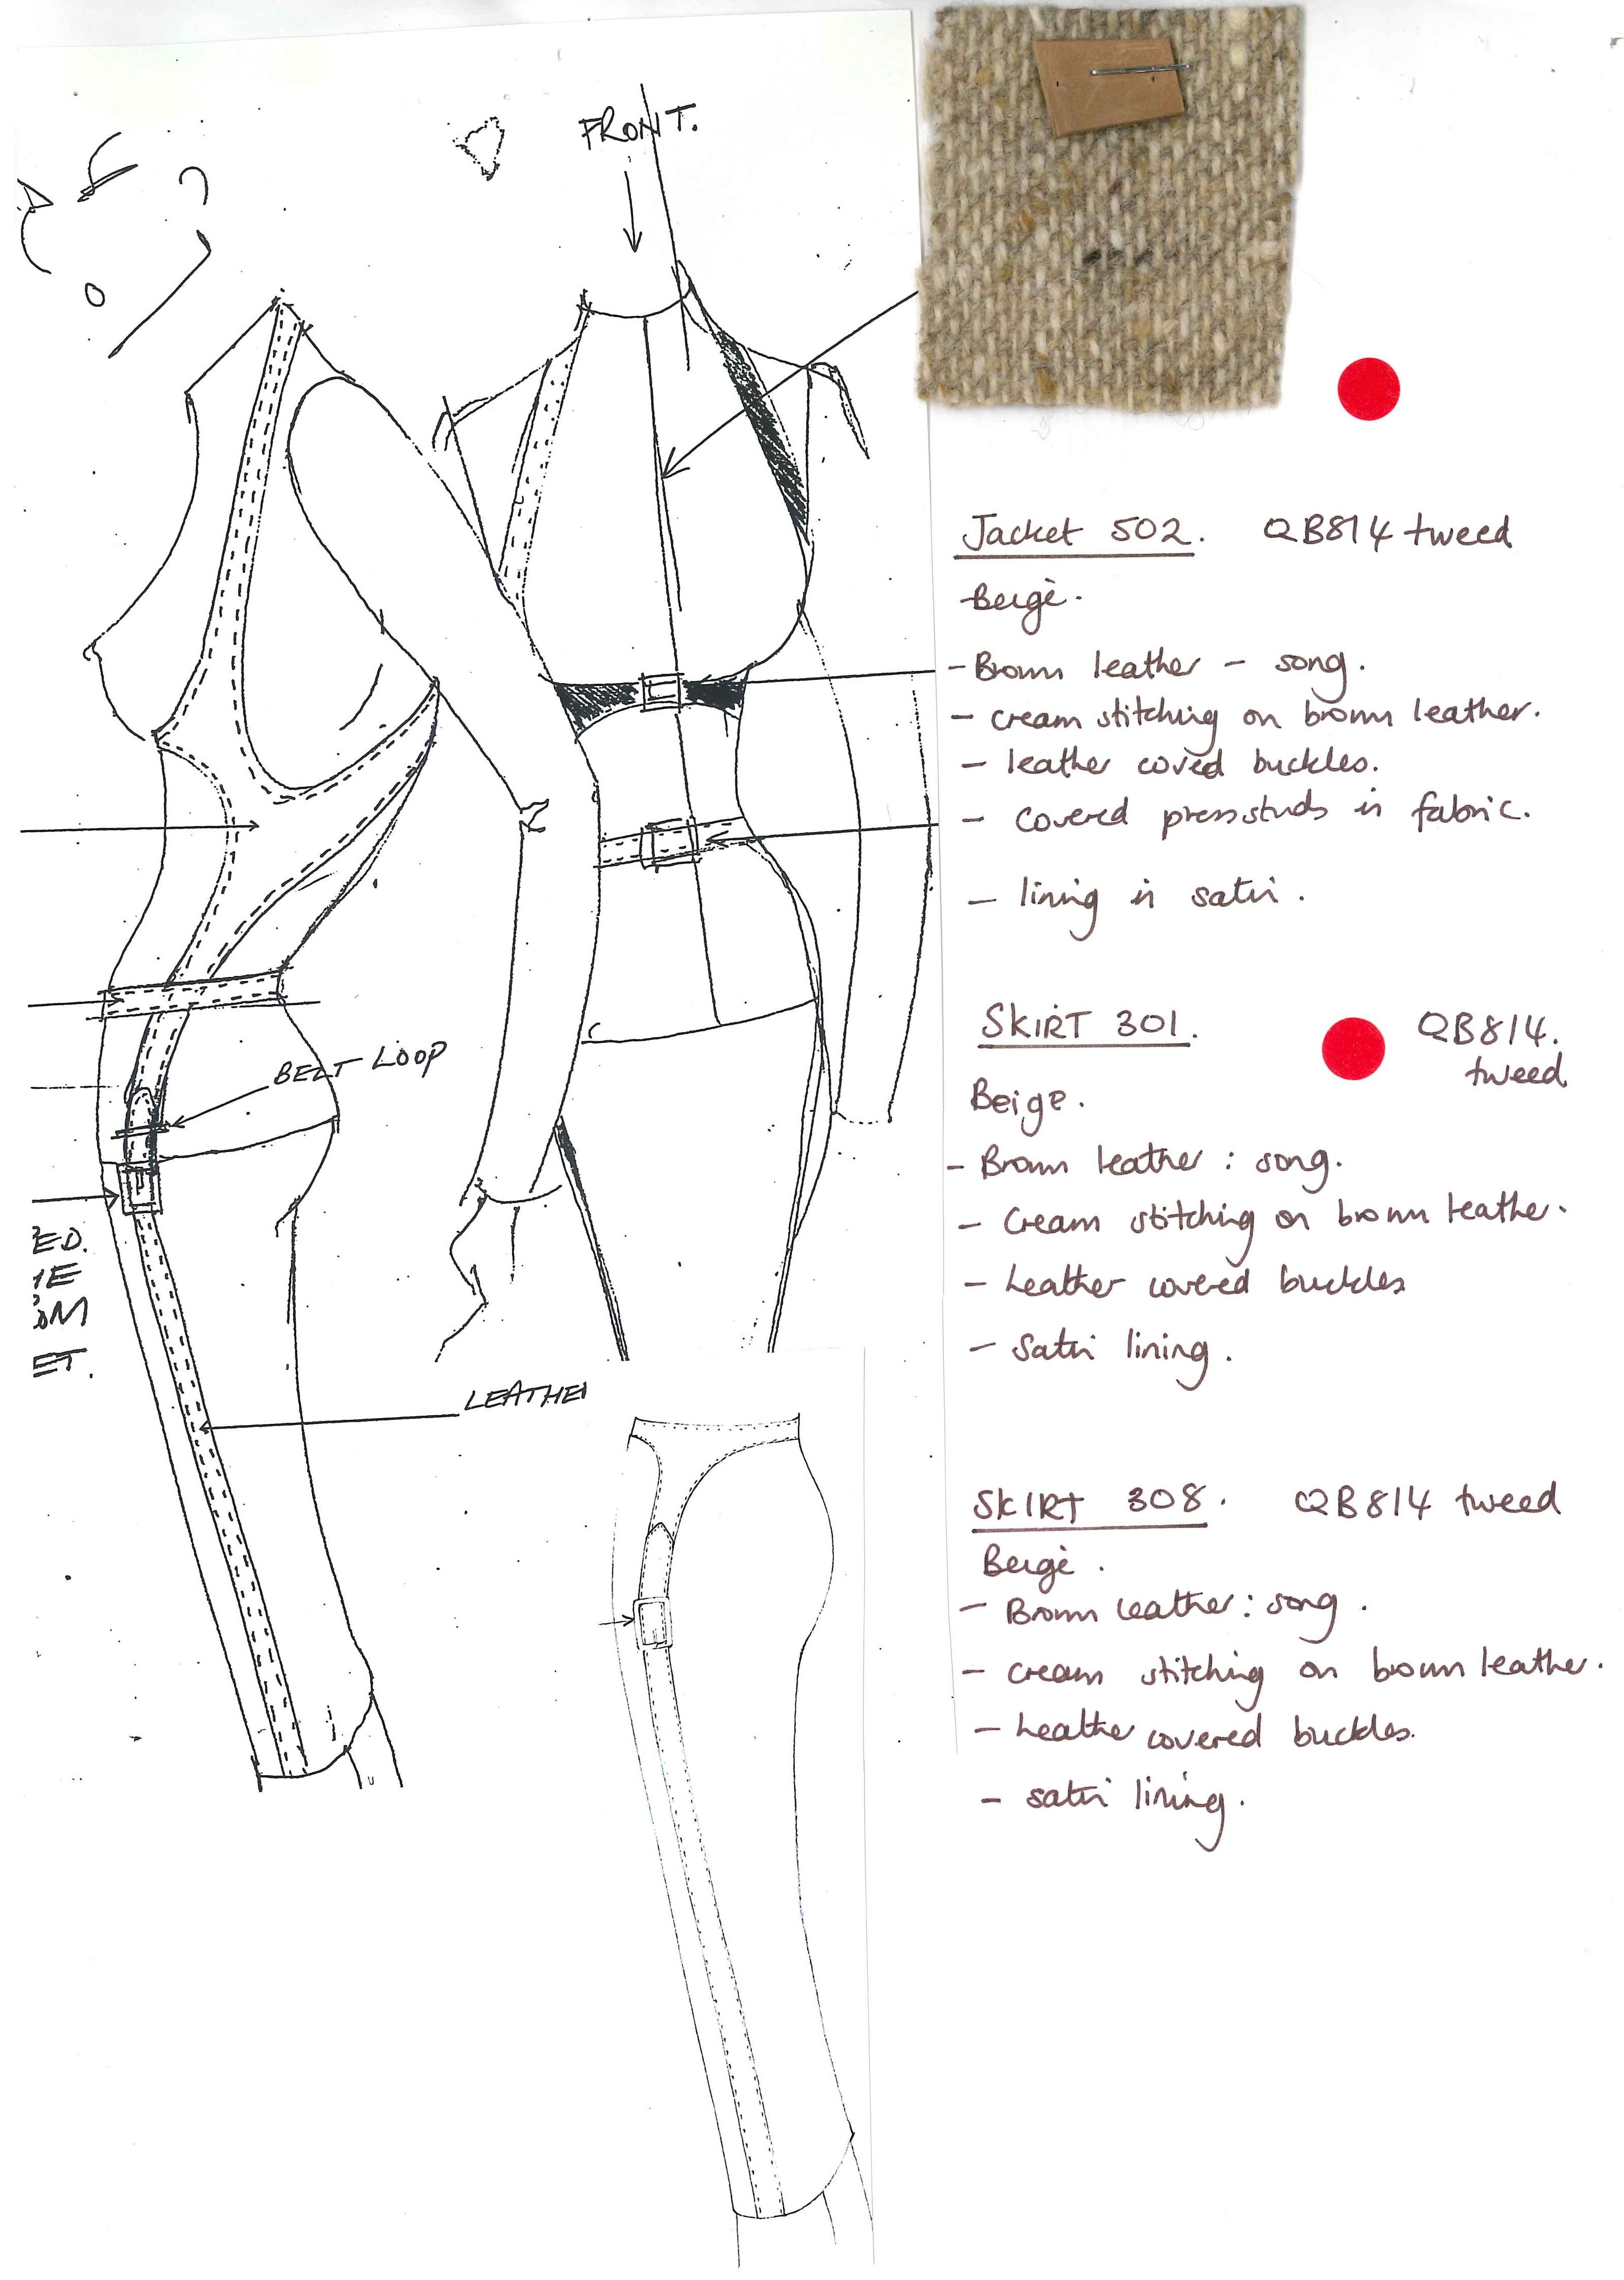 FRONT.
BELT LOOP
ED.
ET.
LEATHE
Jacket 502. QB814 tweed
Beige.
- Brown leather - song.
- cream stitching on brown leather.
- leather coved buckles.
- covered press studs in fabric.
- lining in satin.
SKIRT 301. QB814.
tweed
Beige.
- Brown leather : song.
- Cream stitching on brown leather.
- Leather covered buckles
- Satin lining.
SKIRT 308. QB814 tweed
Beige.
- Brown leather : song.
- cream stitching on brown leather.
- Leather covered buckles.
- satin lining.